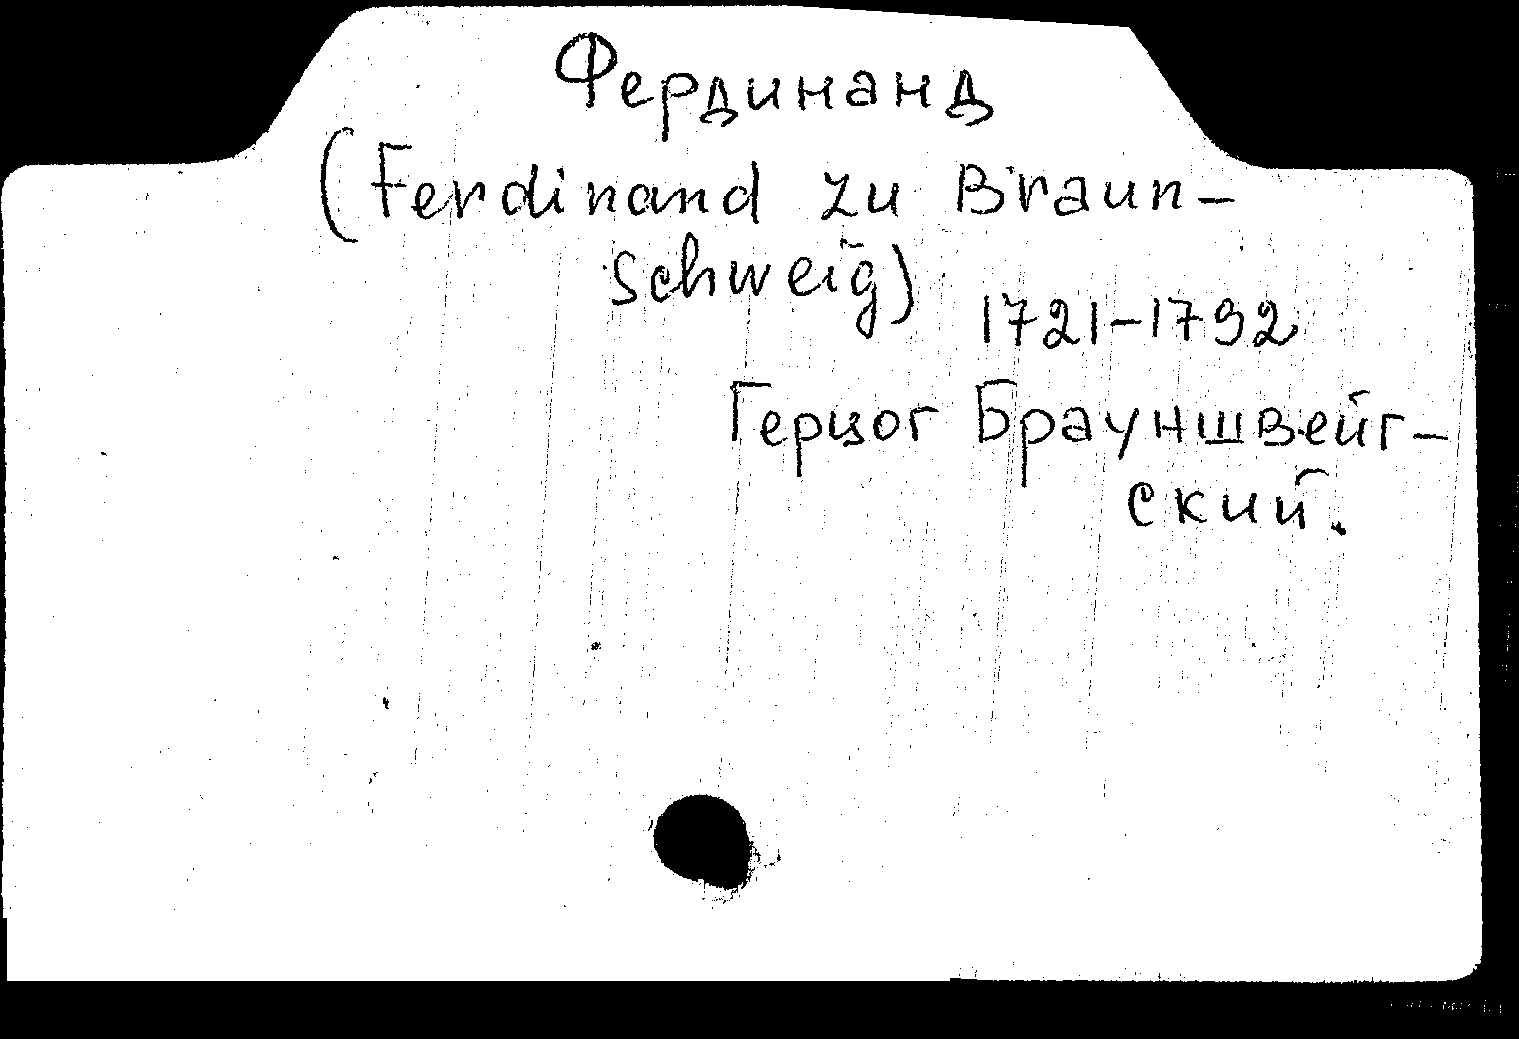 Фердинанд
(Ferdinand zu Braun-
schweig)
1721-1792
Герцог Брауншвейг-
ский.